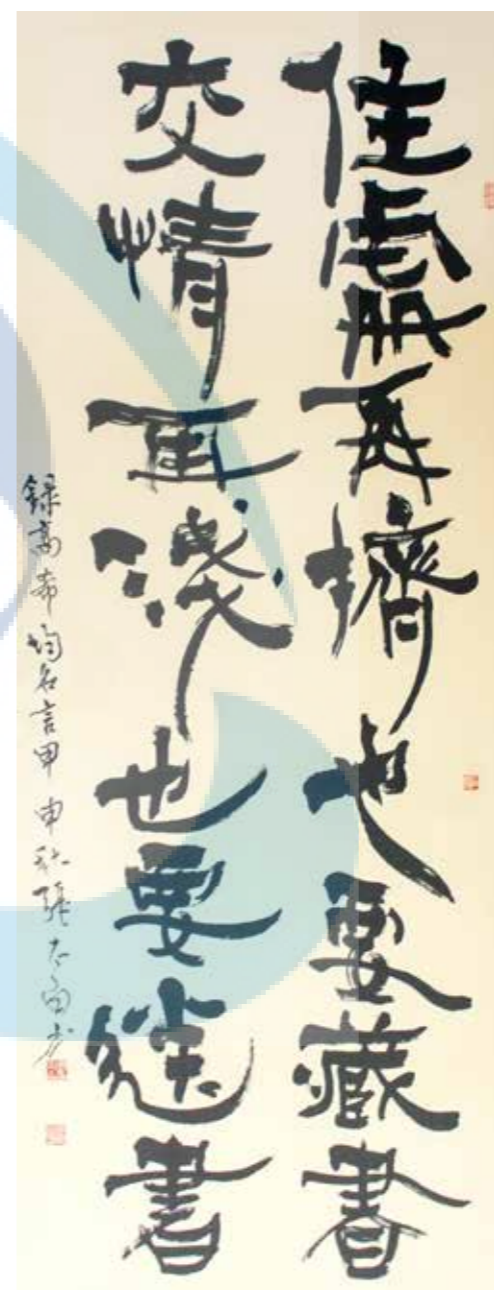 住處再擠也要藏書
交情再淺也要送書
錄高希均名言甲申秋張